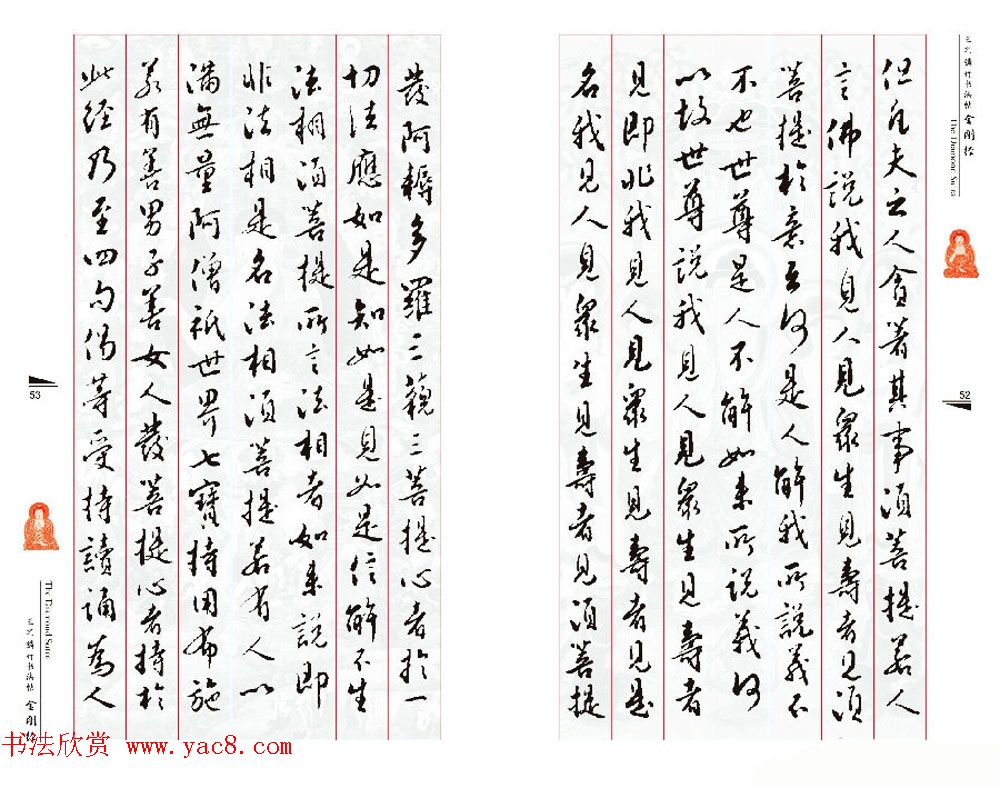 金剛經
The Diamond Sutra
52
但凡夫之人貪著其事須菩提若人
言佛說我見人見眾生見壽者見須
菩提於意云何是人解我所說義不
不也世尊是人不解如來所說義何
以故世尊說我見人見眾生見壽者
見即非我見人見眾生見壽者見是
名我見人見眾生見壽者見須菩提
發阿耨多羅三藐三菩提心者於一
切法應如是知如是見如是信解不生
法相須菩提所言法相者如來說即
非法相是名法相須菩提若有人以
滿無量阿僧祇世界七寶持用布施
若有善男子善女人發菩提心者持於
此經乃至四句偈等受持讀誦為人
53
The Diamond Sutra
金剛經
书法欣赏 www.yac8.com